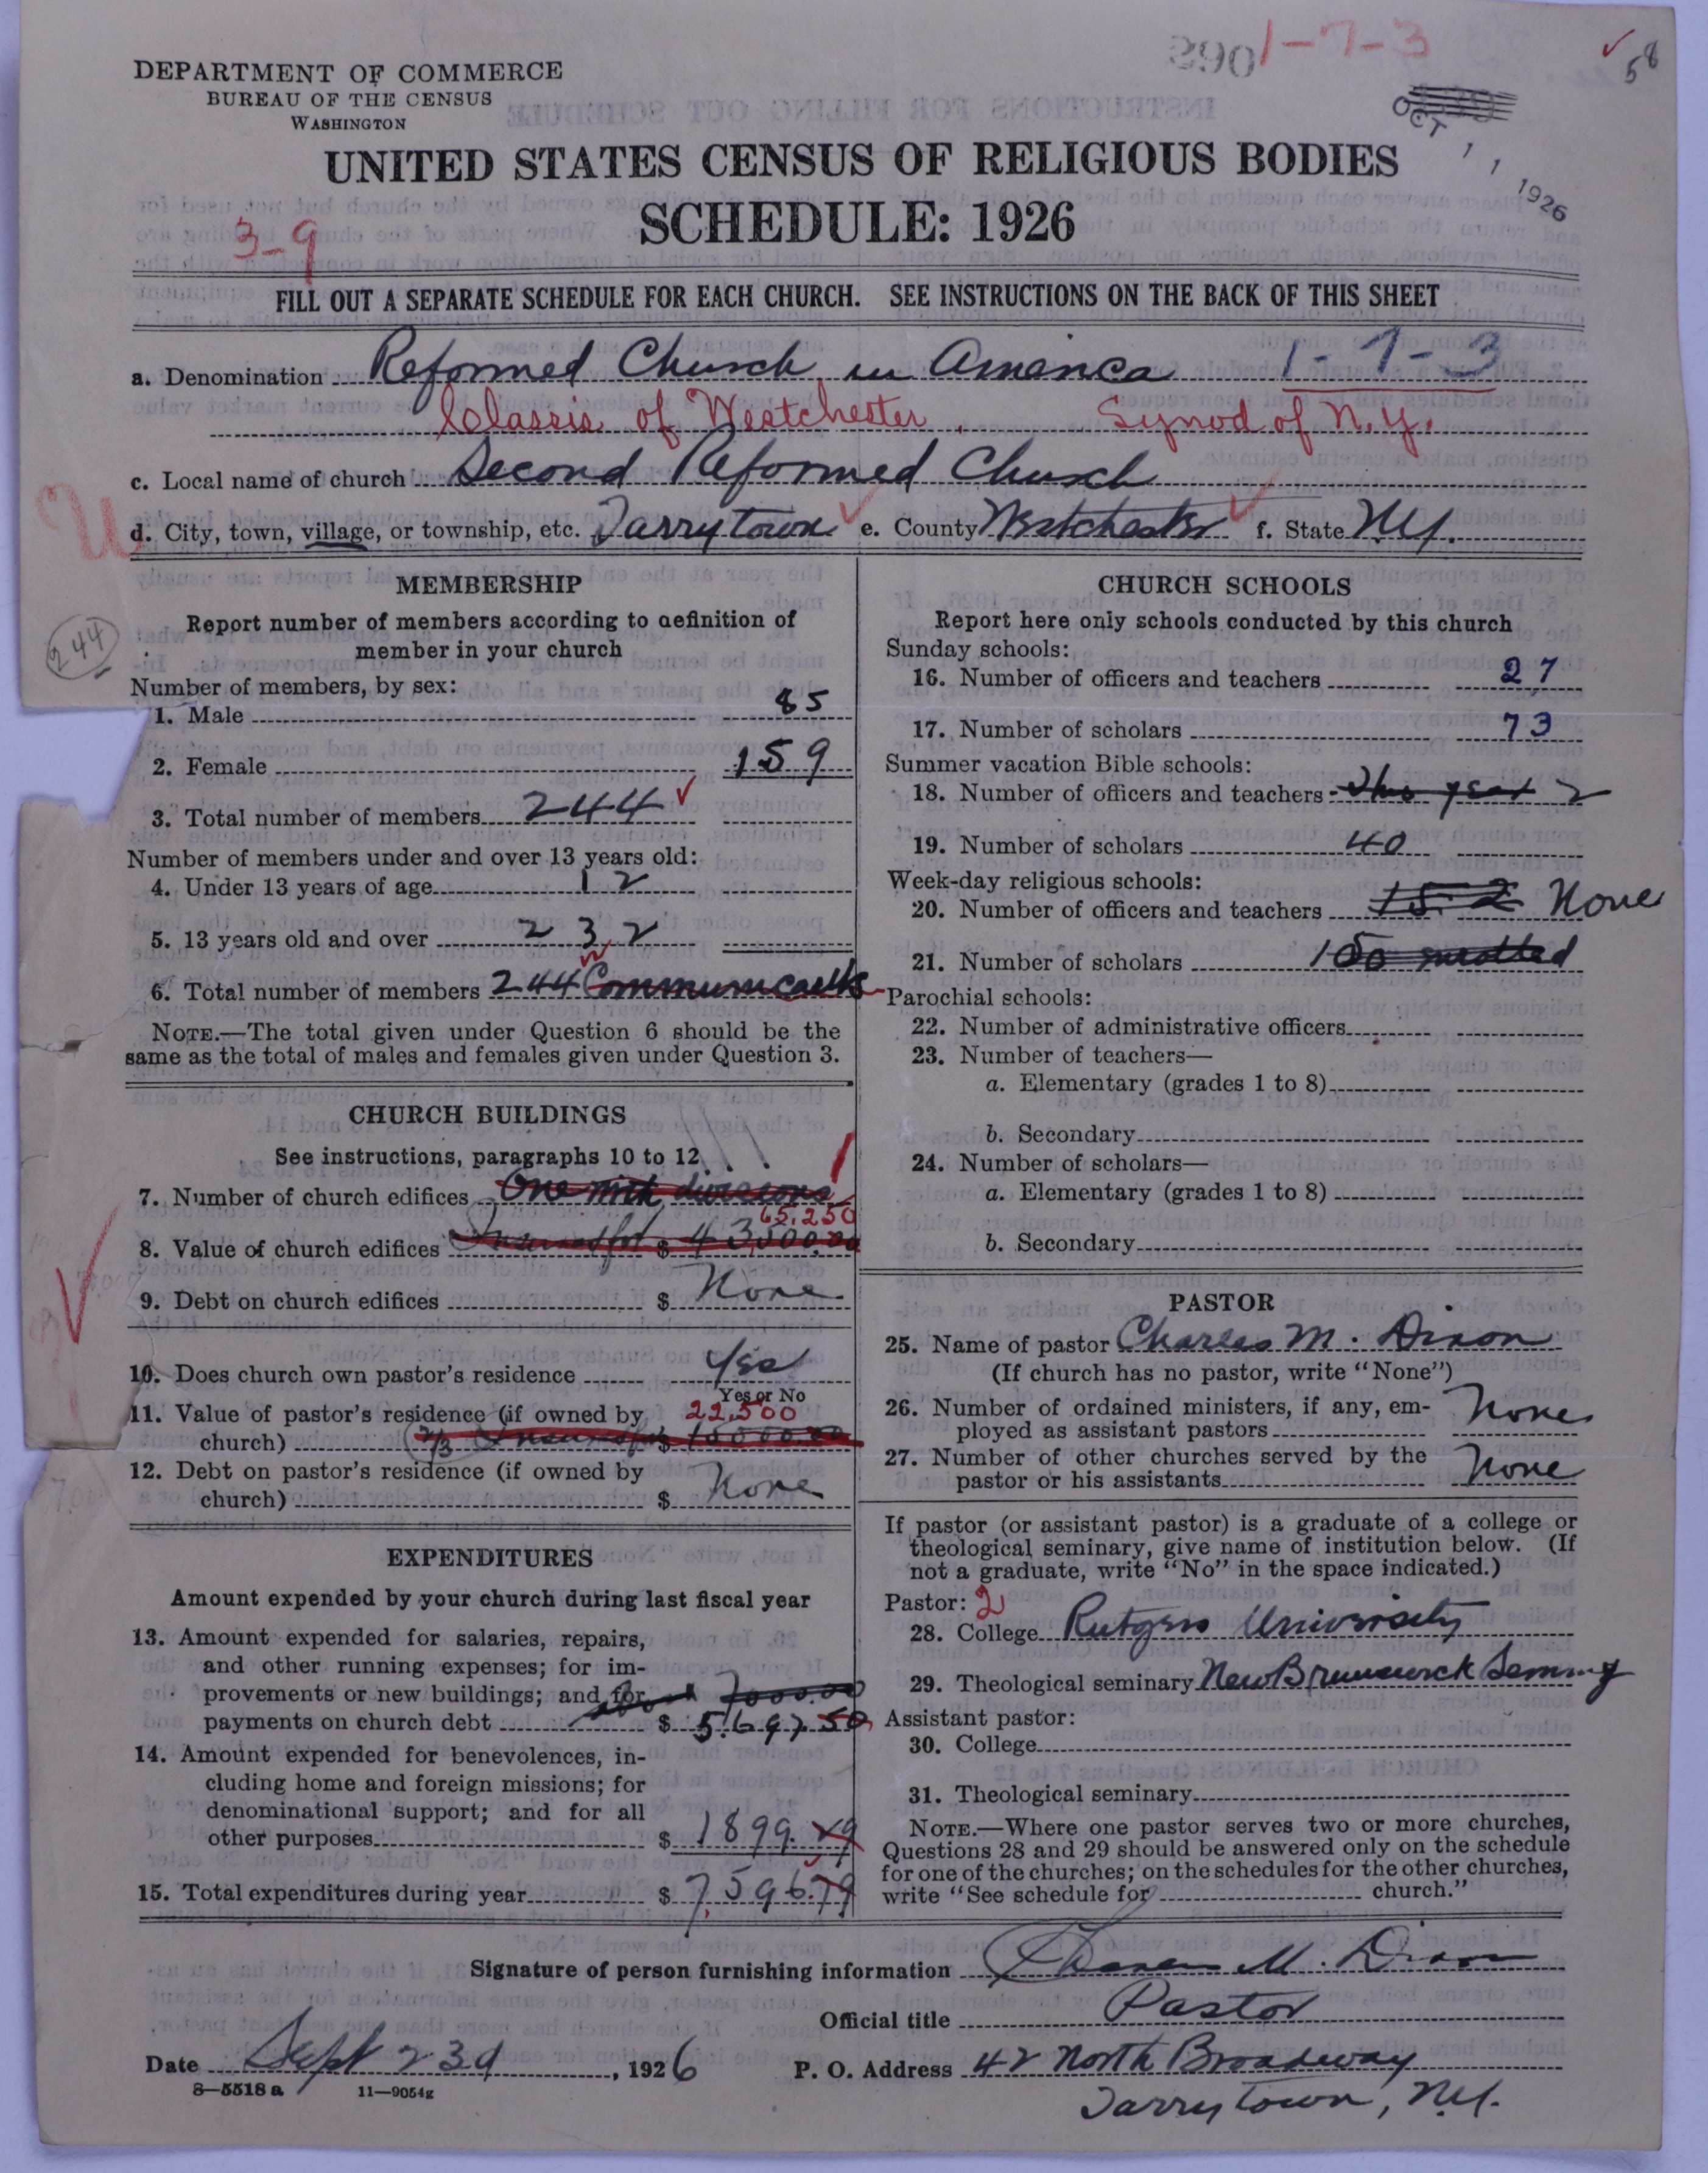 290 1-7-3
✓ 58
DEPARTMENT OF COMMERCE
BUREAU OF THE CENSUS
WASHINGTON
OCT 11 1926
UNITED STATES CENSUS OF RELIGIOUS BODIES
SCHEDULE: 1926
3-9
FILL OUT A SEPARATE SCHEDULE FOR EACH CHURCH. SEE INSTRUCTIONS ON THE BACK OF THIS SHEET
a. Denomination Reformed Church in America 1-7-3
Classis of Westchester, Synod of N.Y.
c. Local name of church Second Reformed Church
d. City, town, village, or township, etc. Tarrytown e. County Westchester f. State N.Y.
MEMBERSHIP
Report number of members according to definition of
member in your church
244
Number of members, by sex:
1. Male 85
2. Female 159
3. Total number of members 244 ✓
Number of members under and over 13 years old:
4. Under 13 years of age 12
5. 13 years old and over 232
6. Total number of members 244 Communicants
NOTE.—The total given under Question 6 should be the
same as the total of males and females given under Question 3.
CHURCH BUILDINGS
See instructions, paragraphs 10 to 12.
7. Number of church edifices One with divisions 1
65,250
8. Value of church edifices Insured for $ 43,500.00
9. Debt on church edifices $ None
10. Does church own pastor's residence Yes
Yes or No
11. Value of pastor's residence (if owned by 22,500
church) (2/3 Insured for $ 15000.00
12. Debt on pastor's residence (if owned by
church) $ None
EXPENDITURES
Amount expended by your church during last fiscal year
13. Amount expended for salaries, repairs,
and other running expenses; for im-
provements or new buildings; and for about 7000.00
payments on church debt $ 5697.50
14. Amount expended for benevolences, in-
cluding home and foreign missions; for
denominational support; and for all
other purposes $ 1899.29
15. Total expenditures during year $ 7596.79
CHURCH SCHOOLS
Report here only schools conducted by this church
Sunday schools:
16. Number of officers and teachers 27
17. Number of scholars 73
Summer vacation Bible schools:
18. Number of officers and teachers This year 2
19. Number of scholars 40
Week-day religious schools:
20. Number of officers and teachers None
21. Number of scholars 150 enrolled
Parochial schools:
22. Number of administrative officers
23. Number of teachers—
a. Elementary (grades 1 to 8)
b. Secondary
24. Number of scholars—
a. Elementary (grades 1 to 8)
b. Secondary
PASTOR
25. Name of pastor Charles M. Dixon
(If church has no pastor, write "None")
26. Number of ordained ministers, if any, em-
ployed as assistant pastors None
27. Number of other churches served by the
pastor or his assistants None
If pastor (or assistant pastor) is a graduate of a college or
theological seminary, give name of institution below. (If
not a graduate, write "No" in the space indicated.)
Pastor: 2
28. College Rutgers University
29. Theological seminary New Brunswick Seminary
Assistant pastor:
30. College
31. Theological seminary
NOTE.—Where one pastor serves two or more churches,
Questions 28 and 29 should be answered only on the schedule
for one of the churches; on the schedules for the other churches,
write "See schedule for church."
Signature of person furnishing information Charles M. Dixon
Official title Pastor
Date Sept 23d, 1926 P. O. Address 42 North Broadway
8—5518 a 11—9054g
Tarrytown, N.Y.